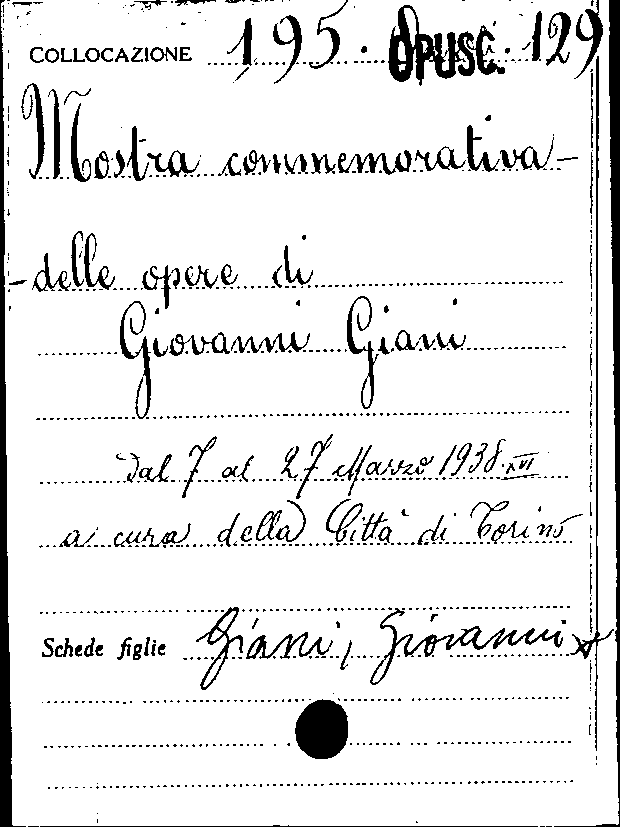 COLLOCAZIONE 195. OPUSC. 129
Mostra commemorativa-
-delle opere di
Giovanni Giani
dal 7 al 27 Marzo 1938. XVI
a cura della Città di Torino
Schede figlie Giani, Giovanni x